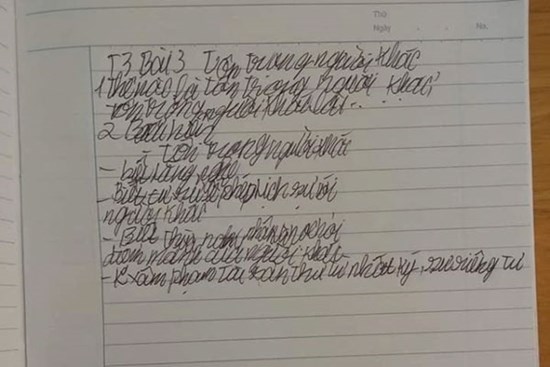 Thứ
Ngày No.
T3 Bài 3 Tôn trọng người khác
1 Thế nào là tôn trọng người khác?
tôn trọng người khác là...
2
- Tôn trọng người khác
- biết lắng nghe
- Biết cư xử lịch sự với
người khác
- Biết thừa nhận
người khác
- K xâm phạm tài sản thư từ nhật ký, sự riêng tư